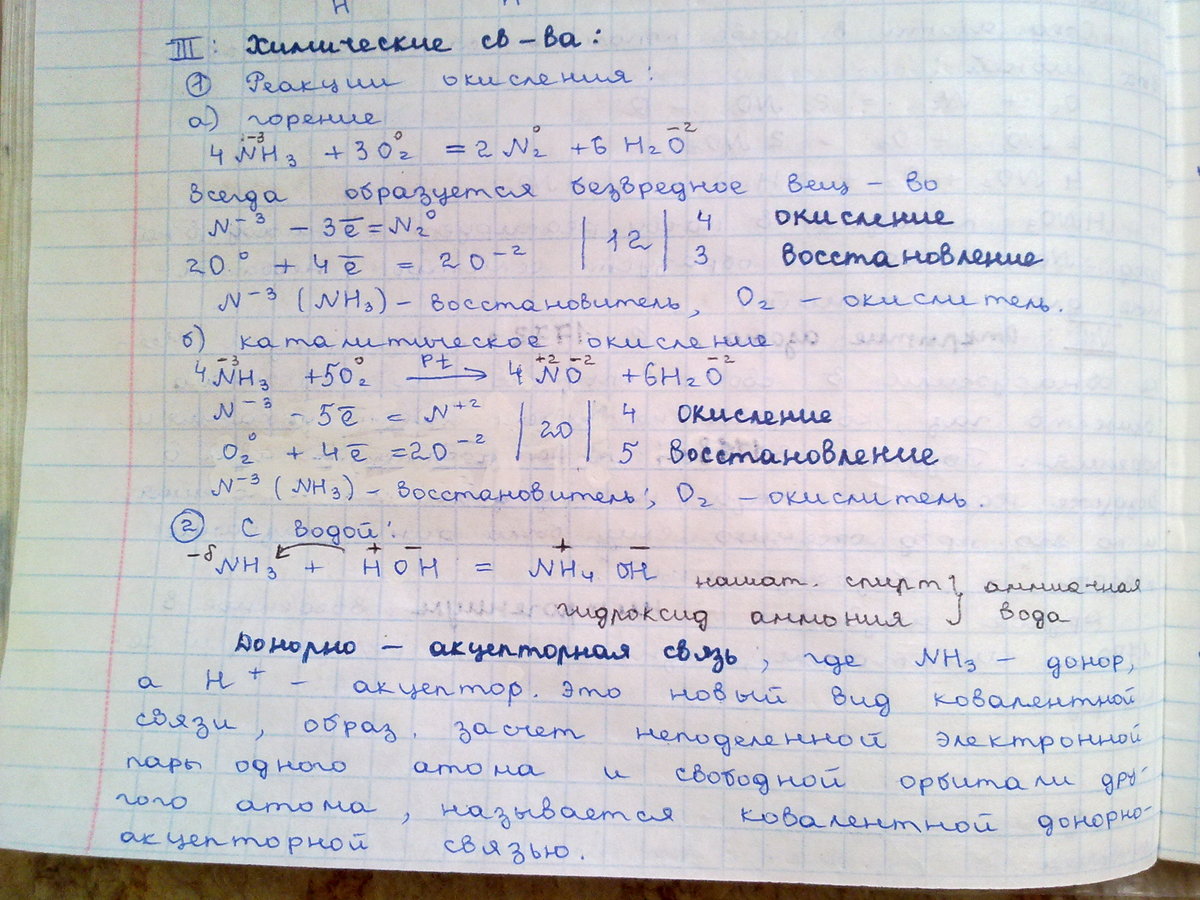 III: Химические св-ва:
① Реакции окисления:
а) горение
4N⁻³H₃ + 3O₂⁰ = 2N₂⁰ + 6H₂O⁻²
всегда образуется безвредное вещ-во
N⁻³ - 3ē = N₂⁰ | 12 | 4 окисление
2O⁰ + 4ē = 2O⁻² 3 восстановление
N⁻³ (NH₃) - восстановитель, O₂ - окислитель.
б) каталитическое окисление
4N⁻³H₃ + 5O₂⁰ —Pt→ 4N⁺²O⁻² + 6H₂O⁻²
N⁻³ - 5ē = N⁺² | 20 | 4 окисление
O₂⁰ + 4ē = 2O⁻² 5 восстановление
N⁻³ (NH₃) - восстановитель; O₂ - окислитель.
② С водой:
-δNH₃ + H⁺OH⁻ = NH₄⁺OH⁻ нашат. спирт } аммиачная
гидроксид аммония } вода
Донорно - акцепторная связь, где NH₃ - донор,
а H⁺ - акцептор. Это новый вид ковалентной
связи, образ. засчет неподеленной электронной
пары одного атома и свободной орбитали дру-
гого атома, называется ковалентной донорно-
акцепторной связью.